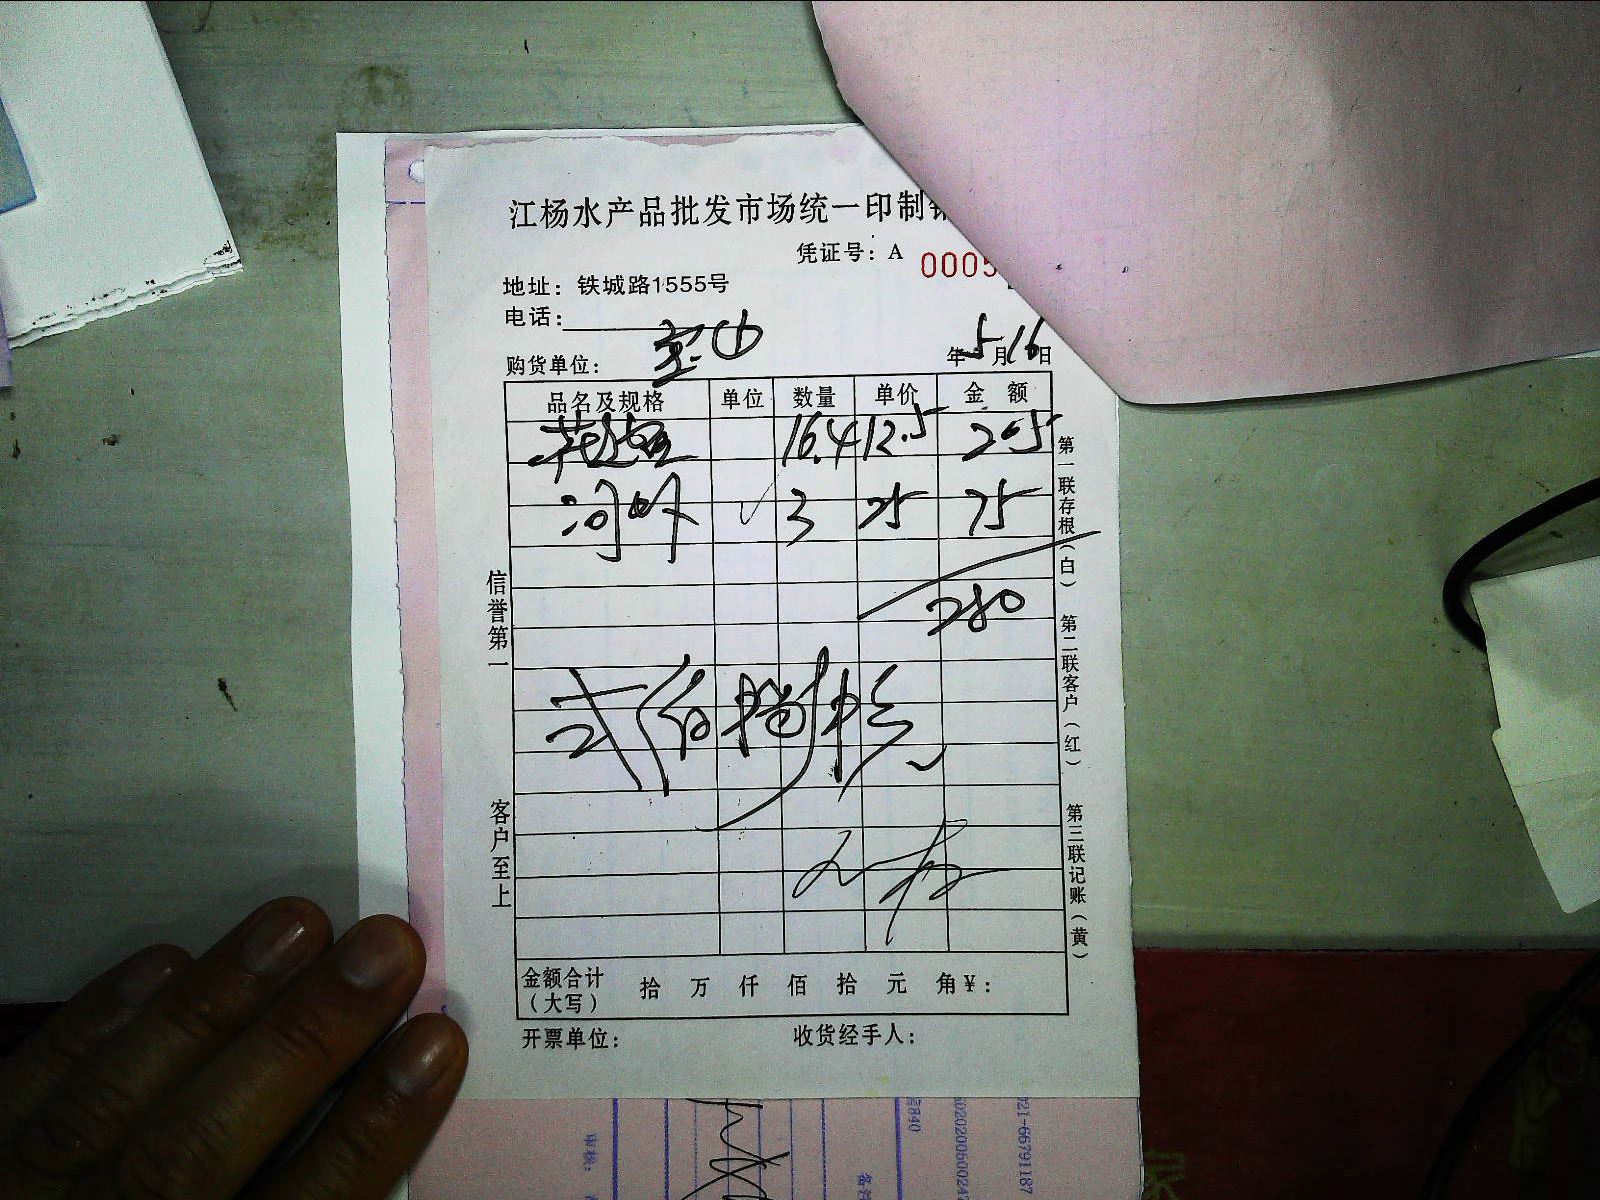 江杨水产品批发市场统一印制销
凭证号：A 0005
地址：铁城路1555号
电话：
购货单位：宝山 年5月16日
品名及规格 单位 数量 单价 金额
花鲢 16.4 12.5 205
河虾 3 25 75
280
弍佰捌拾元
金额合计（大写） 拾 万 仟 佰 拾 元 角 ¥：
开票单位： 收货经手人：
信誉第一 客户至上
第一联存根（白） 第二联客户（红） 第三联记账（黄）
021-66791187